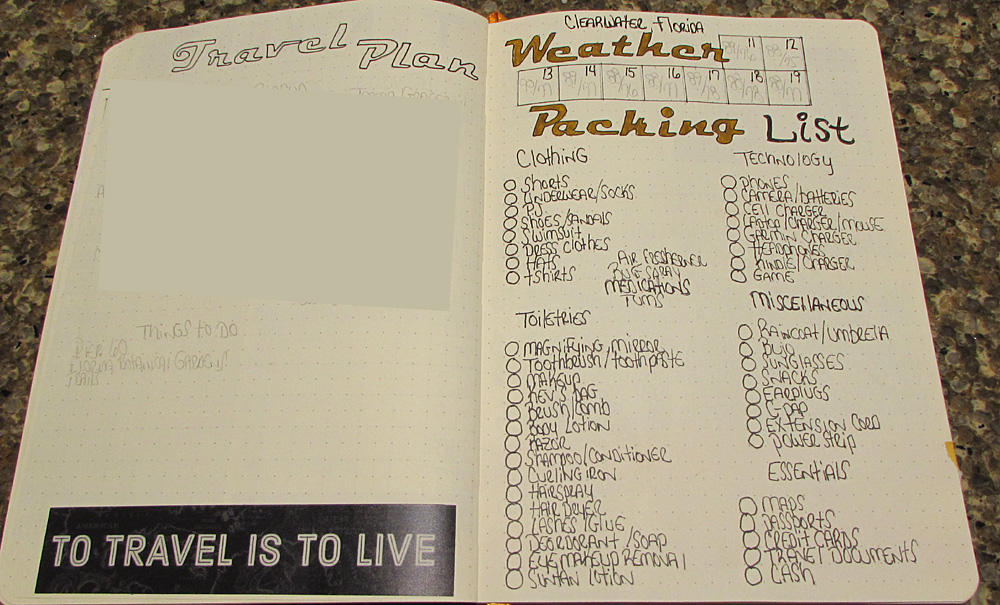 Travel Plan
Things to do
AMERICAN
TO TRAVEL IS TO LIVE
CLEARWATER, FLORIDA
Weather
11 12
13 14 15 16 17 18 19
Packing List
CLOTHING
SHORTS
UNDERWEAR/SOCKS
PJ
SHOES/SANDALS
SWIMSUIT
DRESS CLOTHES
HATS
TSHIRTS
AIR FRESHENER
BUG SPRAY
MEDICATIONS
TUMS
TOILETRIES
MAGNIFYING MIRROR
TOOTHBRUSH/TOOTHPASTE
MAKEUP
KEV'S BAG
BRUSH/COMB
BODY LOTION
RAZOR
SHAMPOO/CONDITIONER
CURLING IRON
HAIRSPRAY
HAIR DRYER
LASHES/GLUE
DEORDORANT/SOAP
EYE MAKEUP REMOVAL
SUNTAN LOTION
TECHNOLOGY
PHONES
CAMERA/BATTERIES
CELL CHARGER
LAPTOP/CHARGER/MOUSE
GARMIN CHARGER
HEADPHONES
KINDLE/CHARGER
GAME
MISCELLANEOUS
RAINCOAT/UMBRELLA
BUJO
SUNGLASSES
SNACKS
EARPLUGS
C-PAP
EXTENSION CORD
POWER STRIP
ESSENTIALS
MAPS
PASSPORTS
CREDIT CARDS
TRAVEL DOCUMENTS
CASH